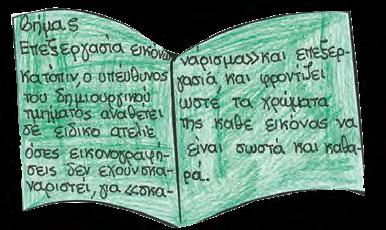 Βήμας
Επεξεργασία εικόνων
κατόπιν, ο υπεύθυνος
του δημιουργικού
τμήματος αναθέτει
σε ειδικό ατελιέ
όσες εικονογραφή-
σεις δεν έχουν σκα-
ναριστεί, για «σκα-
νάρισμα» και επεξερ-
γασία, και φροντίζει
ώστε, τα χρώματα
της κάθε εικόνας να
είναι σωστά και καθα-
ρά.